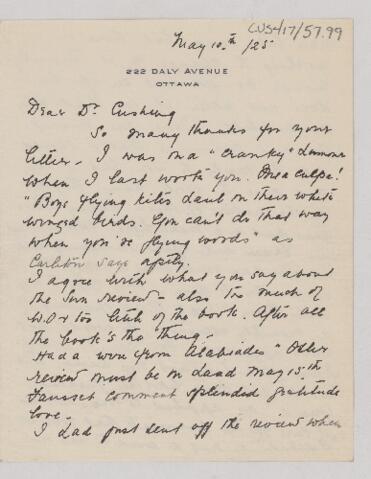 CUS417/57.99
May 10th /25
222 DALY AVENUE
OTTAWA
Dear Dr Cushing
So many thanks for your
letter. I was in a "cranky" humour
when I last wrote you. Mea culpa!
"Boys flying kites haul in their white
winged birds. You can't do that way
when you're flying words" as
Carleton says aptly.
I agree with what you say about
the Sun review - also too much of
W.O & too little of the book. After all
the book's the thing.
Had a wire from Alabiades "Osler
review must be in hand May 15th
Fausset comment splendid gratitude
love.
I had just sent off the review when